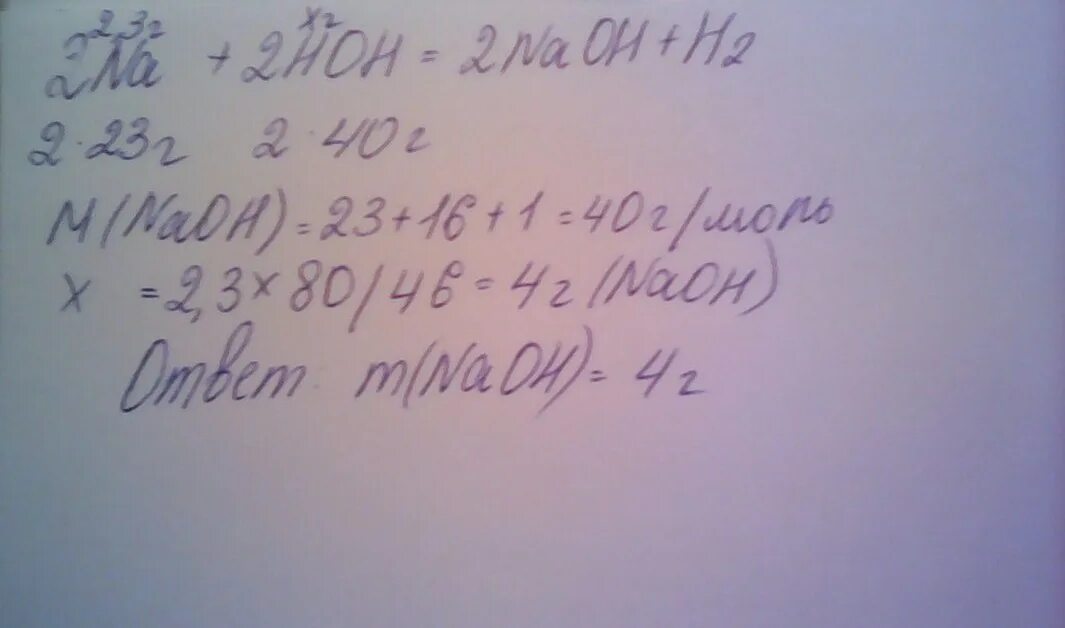 2,3г хг
2Na + 2HOH = 2NaOH + H2
2·23г 2·40г
M(NaOH) = 23+16+1 = 40г/моль
x = 2,3×80/46 = 4г (NaOH)
Ответ m(NaOH) = 4г